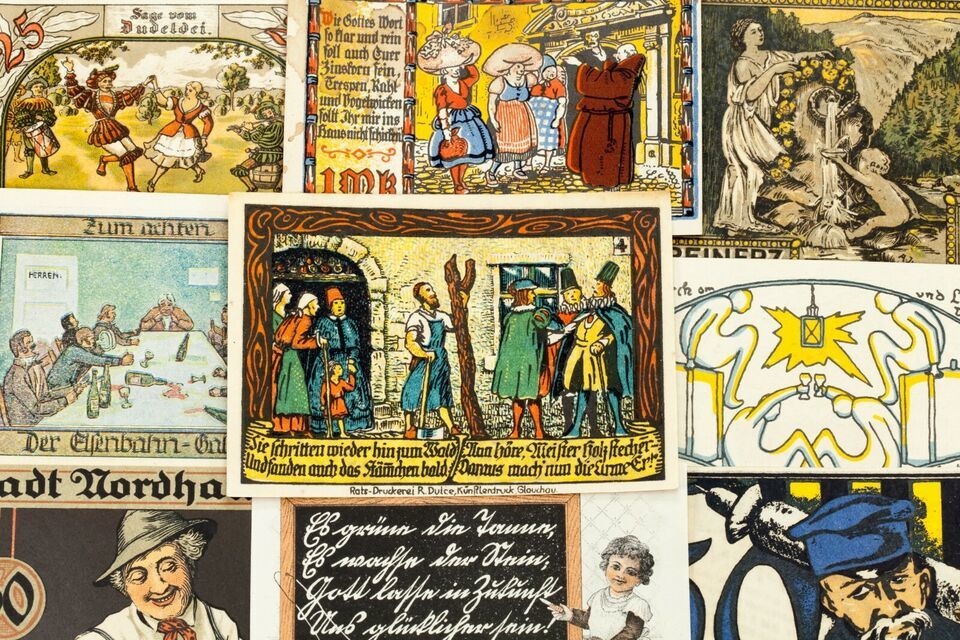 Sage vom
Dudeldei.
Wie Gottes Wort
so klar und rein
soll auch Euer
Zinskorn sein,
Trespen, Kaht
und Vogelwicken
sollt Ihr mir ins
Haus nicht schicken
1 MK
REINERZ
Zum achten
HERREN.
Der Eisenbahn-Ga
4
Sie schritten wieder hin zum Wald
Und fanden auch das Stämmchen bald
Nun höre, Meister Holzstecher
Daraus mach' nun die Arme Er!
Rats-Druckerei R. Dulce, Künstlerdruck Glauchau.
und
adt Nordha
Es grüne die Tanne,
Es wachse der Stein,
Gott lasse in Zukunft
Uns glücklicher sein!
50